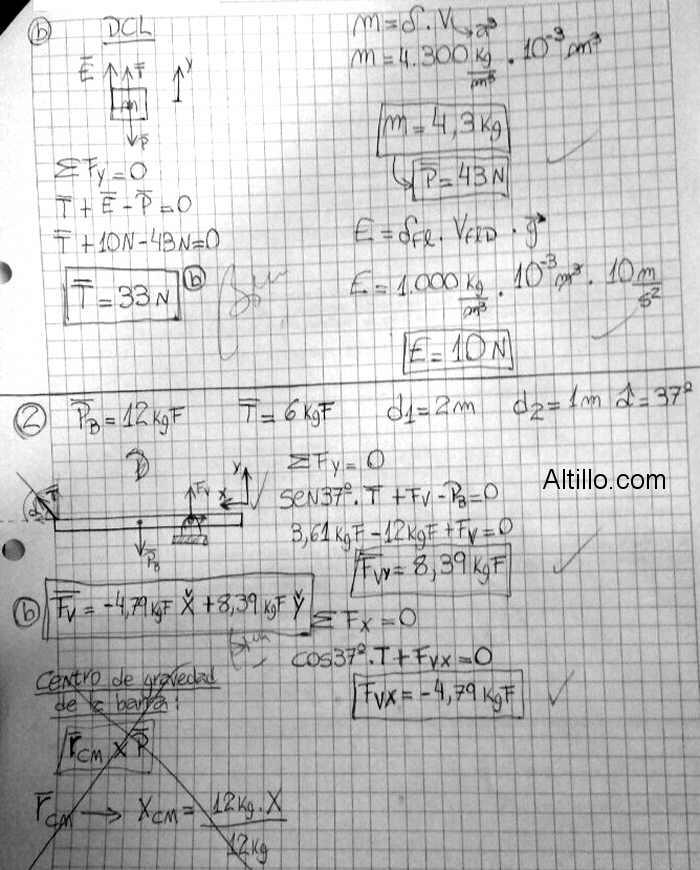 b DCL
E T y
m
P
ΣFy=0
T+E-P=0
T+10N-43N=0
T=33N b
m=δ.V
m=4.300 kg/m³ . 10⁻³ m³
m=4,3kg
P=43N
E=δFl.VFlD.g
E=1.000 kg/m³ . 10⁻³ m³ . 10 m/s²
E=10N
2 PB=12kgF T=6kgF d1=2m d2=1m α=37º
Altillo.com
T α Fv x y
PB
ΣFy=0
SEN37º.T+Fv-PB=0
3,61kgF-12kgF+Fv=0
Fvy=8,39kgF
b Fv=-4,79kgF X̌+8,39kgF Y̌
ΣFx=0
cos37º.T+Fvx=0
Fvx=-4,79kgF
Centro de gravedad
de la barra:
rcm x P
rcm → Xcm = 12kg.X / 12kg